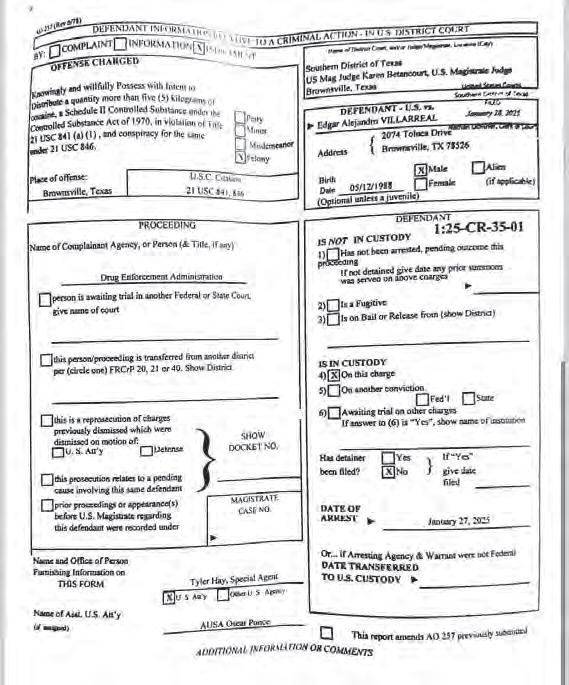 AO 257 (Rev 6/78)
DEFENDANT INFORMATION RELATIVE TO A CRIMINAL ACTION - IN U.S. DISTRICT COURT
BY: COMPLAINT INFORMATION X INDICTMENT
OFFENSE CHARGED
Knowingly and willfully Possess with Intent to
Distribute a quantity more than five (5) kilograms of
cocaine, a Schedule II Controlled Substance under the
Controlled Substance Act of 1970, in violation of Title
21 USC 841 (a) (1), and conspiracy for the same
under 21 USC 846.
Petty
Minor
Misdemeanor
X Felony
Place of offense:
Brownsville, Texas
U.S.C. Citation
21 USC 841, 846
Name of District Court, and/or Judge/Magistrate, Location (City)
Southern District of Texas
US Mag Judge Karen Betancourt, U.S. Magistrate Judge
Brownsville, Texas
United States Courts
Southern District of Texas
FILED
January 28, 2025
Nathan Ochsner, Clerk of Court
DEFENDANT - U.S. vs.
Edgar Alejandro VILLARREAL
Address
2074 Toluca Drive
Brownsville, TX 78526
Birth
Date 05/12/1988
X Male
Female
Alien
(if applicable)
(Optional unless a juvenile)
PROCEEDING
Name of Complainant Agency, or Person (& Title, if any)
Drug Enforcement Administration
person is awaiting trial in another Federal or State Court,
give name of court
this person/proceeding is transferred from another district
per (circle one) FRCrP 20, 21 or 40. Show District.
this is a reprosecution of charges
previously dismissed which were
dismissed on motion of:
U. S. Att'y Defense
this prosecution relates to a pending
cause involving this same defendant
prior proceedings or appearance(s)
before U.S. Magistrate regarding
this defendant were recorded under
SHOW
DOCKET NO.
MAGISTRATE
CASE NO.
Name and Office of Person
Furnishing Information on
THIS FORM
Tyler Hay, Special Agent
X U S Att'y Other U. S. Agency
Name of Asst. U.S. Att'y
(if assigned)
AUSA Oscar Ponce
DEFENDANT
1:25-CR-35-01
IS NOT IN CUSTODY
1) Has not been arrested, pending outcome this
proceeding
If not detained give date any prior summons
was served on above charges
2) Is a Fugitive
3) Is on Bail or Release from (show District)
IS IN CUSTODY
4) X On this charge
5) On another conviction
Fed'l State
6) Awaiting trial on other charges
If answer to (6) is "Yes", show name of institution
Has detainer
been filed?
Yes
X No
If "Yes"
give date
filed
DATE OF
ARREST January 27, 2025
Or... if Arresting Agency & Warrant were not Federal
DATE TRANSFERRED
TO U.S. CUSTODY
This report amends AO 257 previously submitted
ADDITIONAL INFORMATION OR COMMENTS